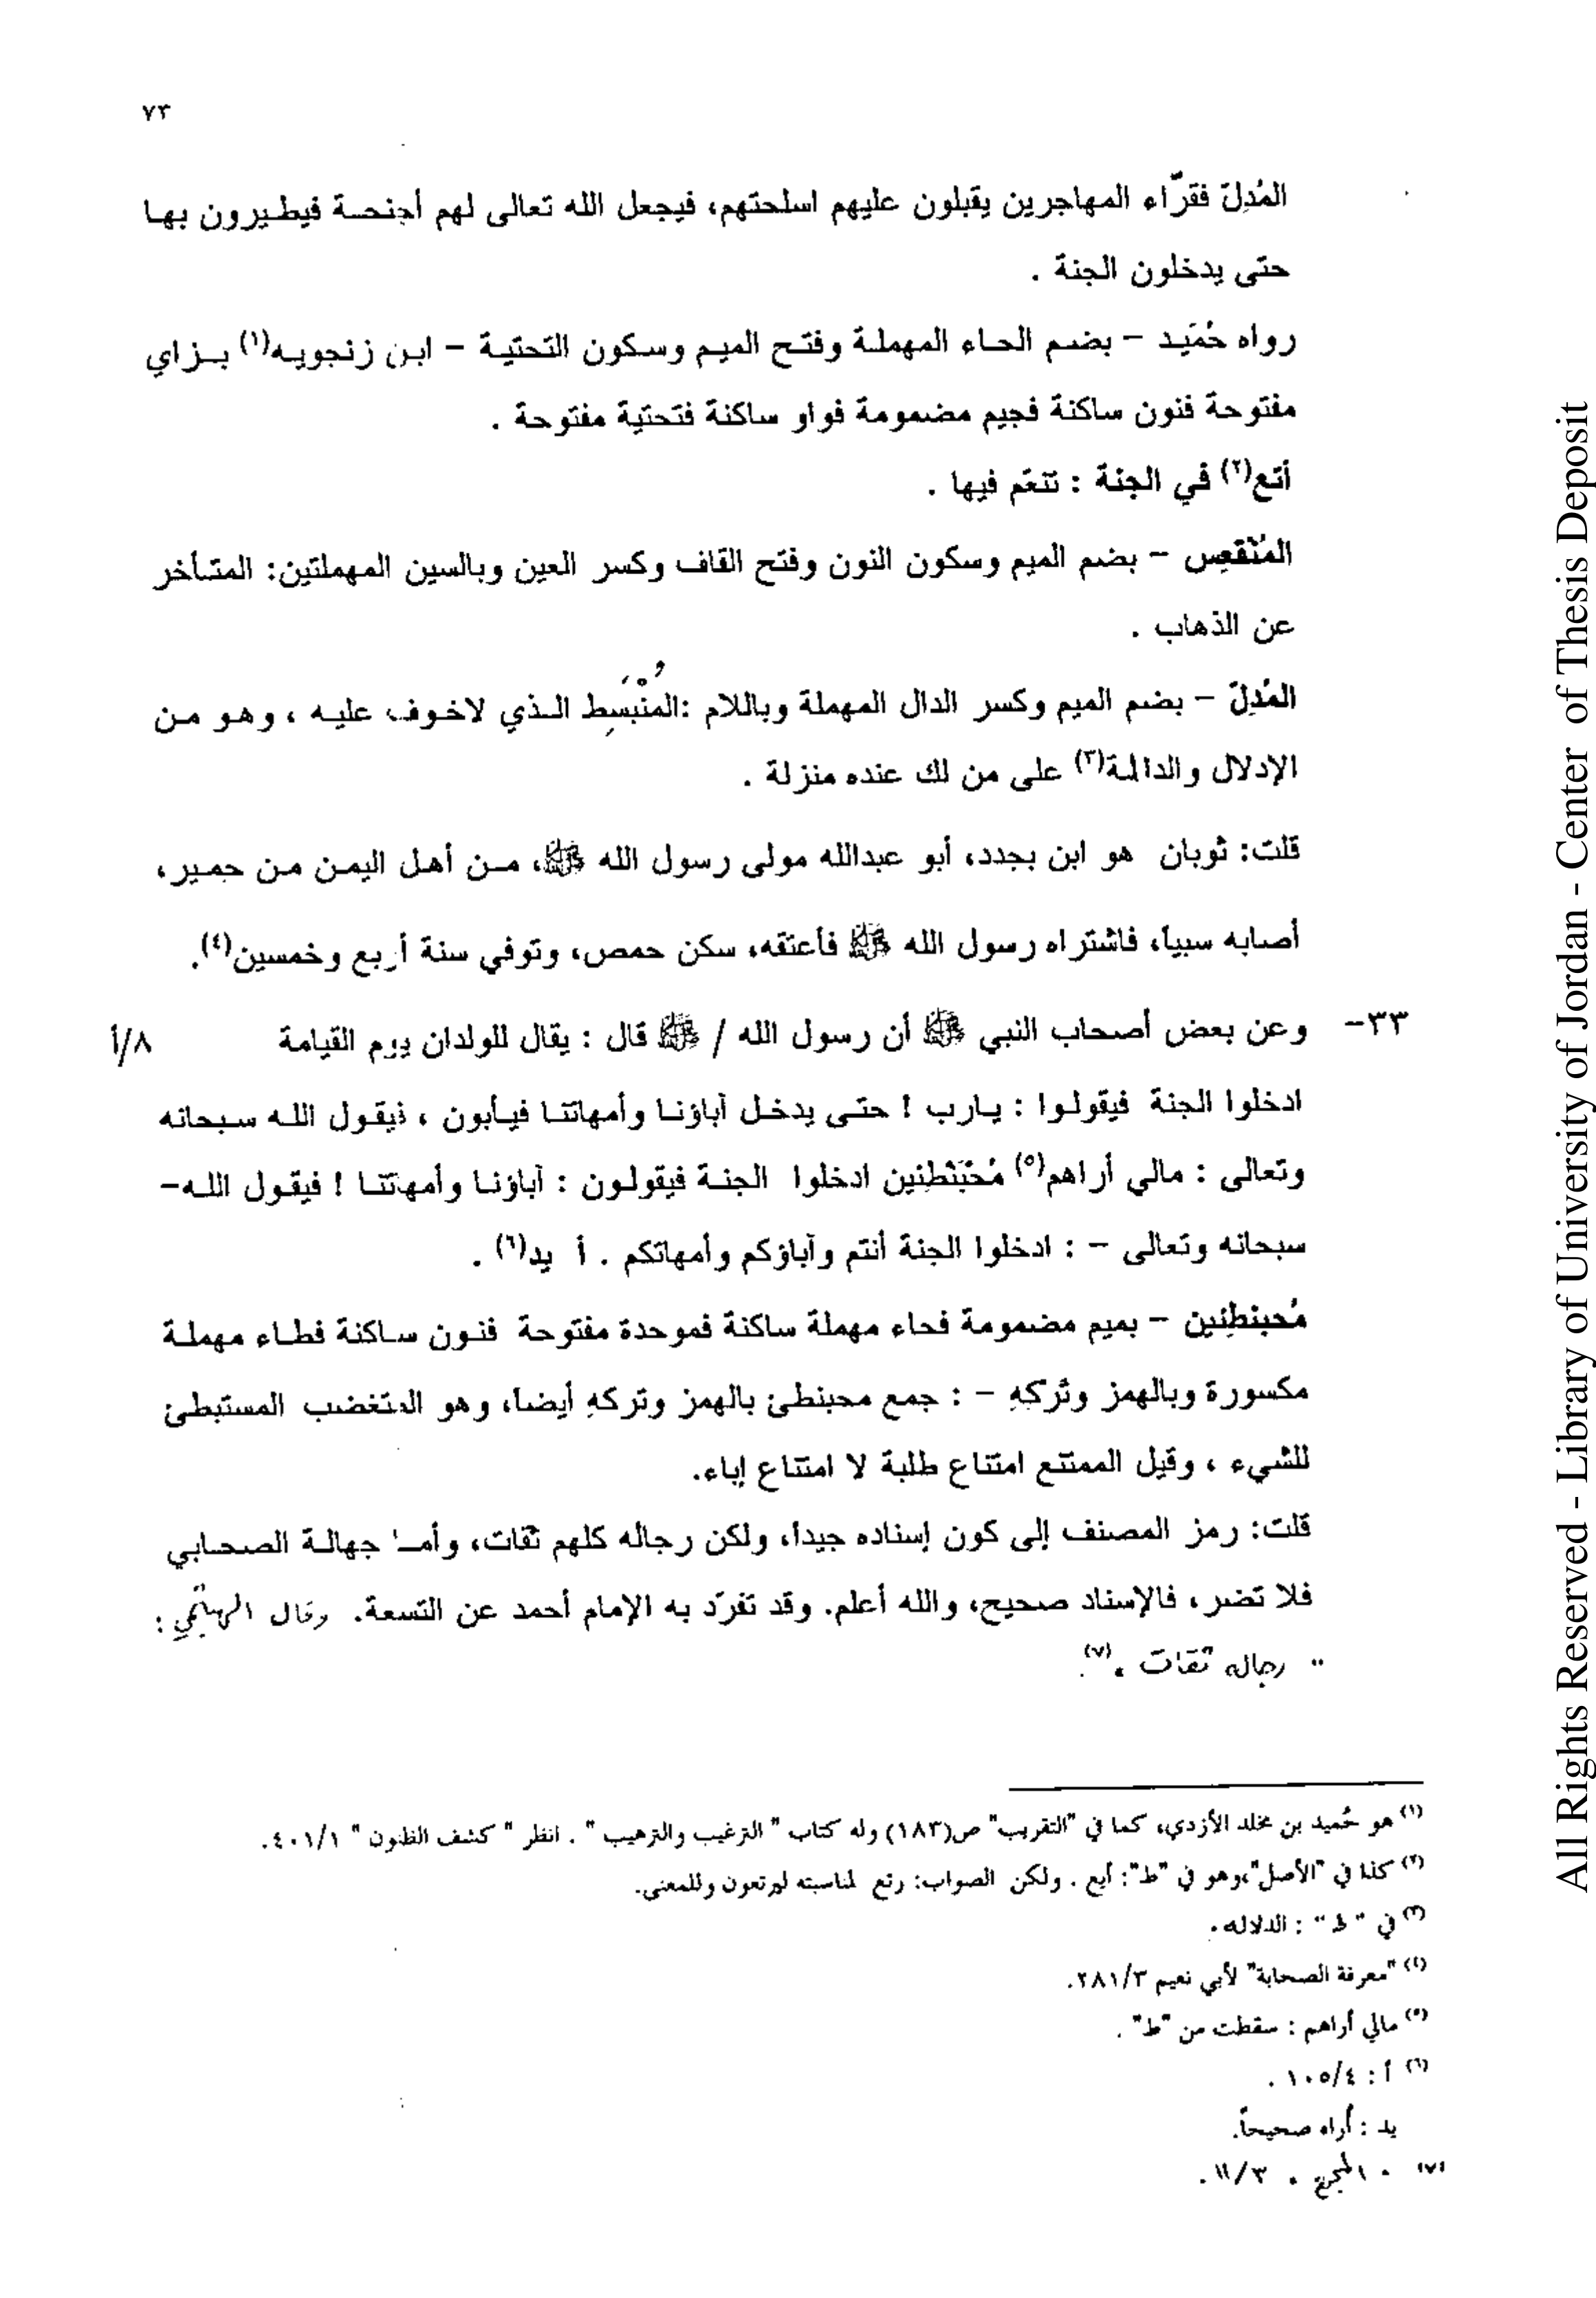 ٧٣
المُدِلّ فقرّاء المهاجرين يقبلون عليهم اسلحتهم، فيجعل الله تعالى لهم أجنحة فيطيرون بها
حتى يدخلون الجنة .
رواه حُمَيد – بضم الحاء المهملة وفتح الميم وسكون التحتية – ابن زنجويه(١) بزاي
مفتوحة فنون ساكنة فجيم مضمومة فواو ساكنة فتحتية مفتوحة .
أتع(٢) في الجنة : تنعّم فيها .
المُنْقَعِس – بضم الميم وسكون النون وفتح القاف وكسر العين وبالسين المهملتين: المتأخر
عن الذهاب .
المُدِلّ – بضم الميم وكسر الدال المهملة وباللام :المُنْبَسِط الذي لاخوف عليه ، وهو من
الإدلال والدالة(٣) على من لك عنده منزلة .
قلت: ثوبان هو ابن بجدد، أبو عبدالله مولى رسول الله ﷺ، من أهل اليمن من حمير،
أصابه سبياً، فاشتراه رسول الله ﷺ فأعتقه، سكن حمص، وتوفي سنة أربع وخمسين(٤).
٣٣- وعن بعض أصحاب النبي ﷺ أن رسول الله / ﷺ قال : يقال للولدان يوم القيامة ٨/أ
ادخلوا الجنة فيقولوا : يارب ! حتى يدخل آباؤنا وأمهاتنا فيأبون ، فيقول الله سبحانه
وتعالى : مالي أراهم(٥) مُحْبَنْطِئين ادخلوا الجنة فيقولون : آباؤنا وأمهاتنا ! فيقول الله–
سبحانه وتعالى – : ادخلوا الجنة أنتم وآباؤكم وأمهاتكم . أ يد(٦) .
مُحبنطِئين – بميم مضمومة فحاء مهملة ساكنة فموحدة مفتوحة فنون ساكنة فطاء مهملة
مكسورة وبالهمز وتركهِ – : جمع محبنطئ بالهمز وتركهِ أيضاً، وهو المتغضب المستبطئ
للشيء ، وقيل الممتنع امتناع طلبة لا امتناع إباء.
قلت: رمز المصنف إلى كون إسناده جيداً، ولكن رجاله كلهم ثقات، وأما جهالة الصحابي
فلا تضر، فالإسناد صحيح، والله أعلم. وقد تفرّد به الإمام أحمد عن التسعة. وقال الهيثمي :
" رجاله ثقات "(٧).
(١) هو حُميد بن مخلد الأزدي، كما في "التقريب" ص(١٨٣) وله كتاب " الترغيب والترهيب " . انظر " كشف الظنون " ٤٠١/١.
(٢) كذا في "الأصل"،وهو في "ط": أيع . ولكن الصواب: رتع لمناسبته ليرتعون وللمعنى.
(٣) في " ط " : الدلاله .
(٤) "معرفة الصحابة" لأبي نعيم ٢٨١/٣.
(٥) مالي أراهم : سقطت من "ط" .
(٦) أ : ١٠٥/٤ .
يد : أُراه صحيحاً.
(٧) " المجمع " ١١/٣ .
All Rights Reserved - Library of University of Jordan - Center of Thesis Deposit